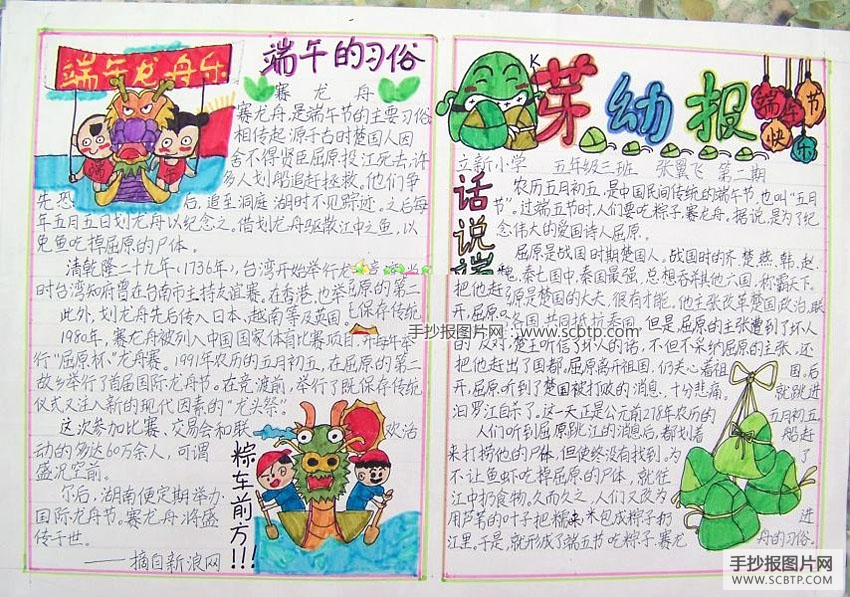 端午龙舟乐
端午的习俗
赛龙舟
赛龙舟,是端午节的主要习俗
相传起源于古时楚国人因
舍不得贤臣屈原投江死去,许
多人划船追赶拯救。他们争
先恐后,追至洞庭湖时不见踪迹。之后每
年五月五日划龙舟以纪念之。借划龙舟驱散江中之鱼,以
免鱼吃掉屈原的尸体。
清乾隆二十九年(1736年),台湾开始举行龙
时台湾知府曾在台南市主持友谊赛。在香港,也举
此外,划龙舟先后传入日本、越南等及英国。
1980年,赛龙舟被列入中国国家体育比赛项目,并每年举
行“屈原杯”龙舟赛。1991年农历的五月初五,在屈原的第二
故乡举行了首届国际龙舟节。在竞渡前,举行了既保存传统
仪式又注入新的现代因素的“龙头祭”。
这次参加比赛、交易会和联欢活
动的多达60万余人,可谓
盛况空前。
尔后,湖南便定期举办
国际龙舟节。赛龙舟将盛
传于世。
——摘自新浪网
粽车前方!!!
端 午
芽幼报
端午节
快乐
立新小学 五年级三班 张翼飞 第二期
话说端
农历五月初五,是中国民间传统的端午节,也叫“五月
节”。过端五节时,人们要吃粽子,赛龙舟。据说,是为了纪
念伟大的爱国诗人屈原。
屈原是战国时期楚国人。战国时的齐、楚、燕、韩、赵、
魏、秦七国中,秦国最强,总想吞并其他六国,称霸天下。
屈原是楚国的大夫,很有才能。他主张改革楚国政治,联
各国,共同抵抗秦国。但是,屈原的主张遭到了坏人
的反对,楚王听信了坏人的话,不但不采纳屈原的主张,还
把他赶出了国都。屈原离开祖国,仍关心着祖国。后
开,屈原听到了楚国被打败的消息,十分悲痛。就跳进
汨罗江自杀了。这一天正是公元前278年农历的五月初五。
人们听到屈原跳江的消息后,都划着船赶
来打捞他的尸体,但使终没有找到。为了
不让鱼虾吃掉屈原的尸体,就往
江中扔食物。久而久之,人们又改为
用芦苇的叶子把糯米包成粽子扔进
江里。于是,就形成了端五节吃粽子、赛龙舟的习俗。
手抄报图片网:www.scbtp.com
手抄报图片网
WWW.SCBTP.COM